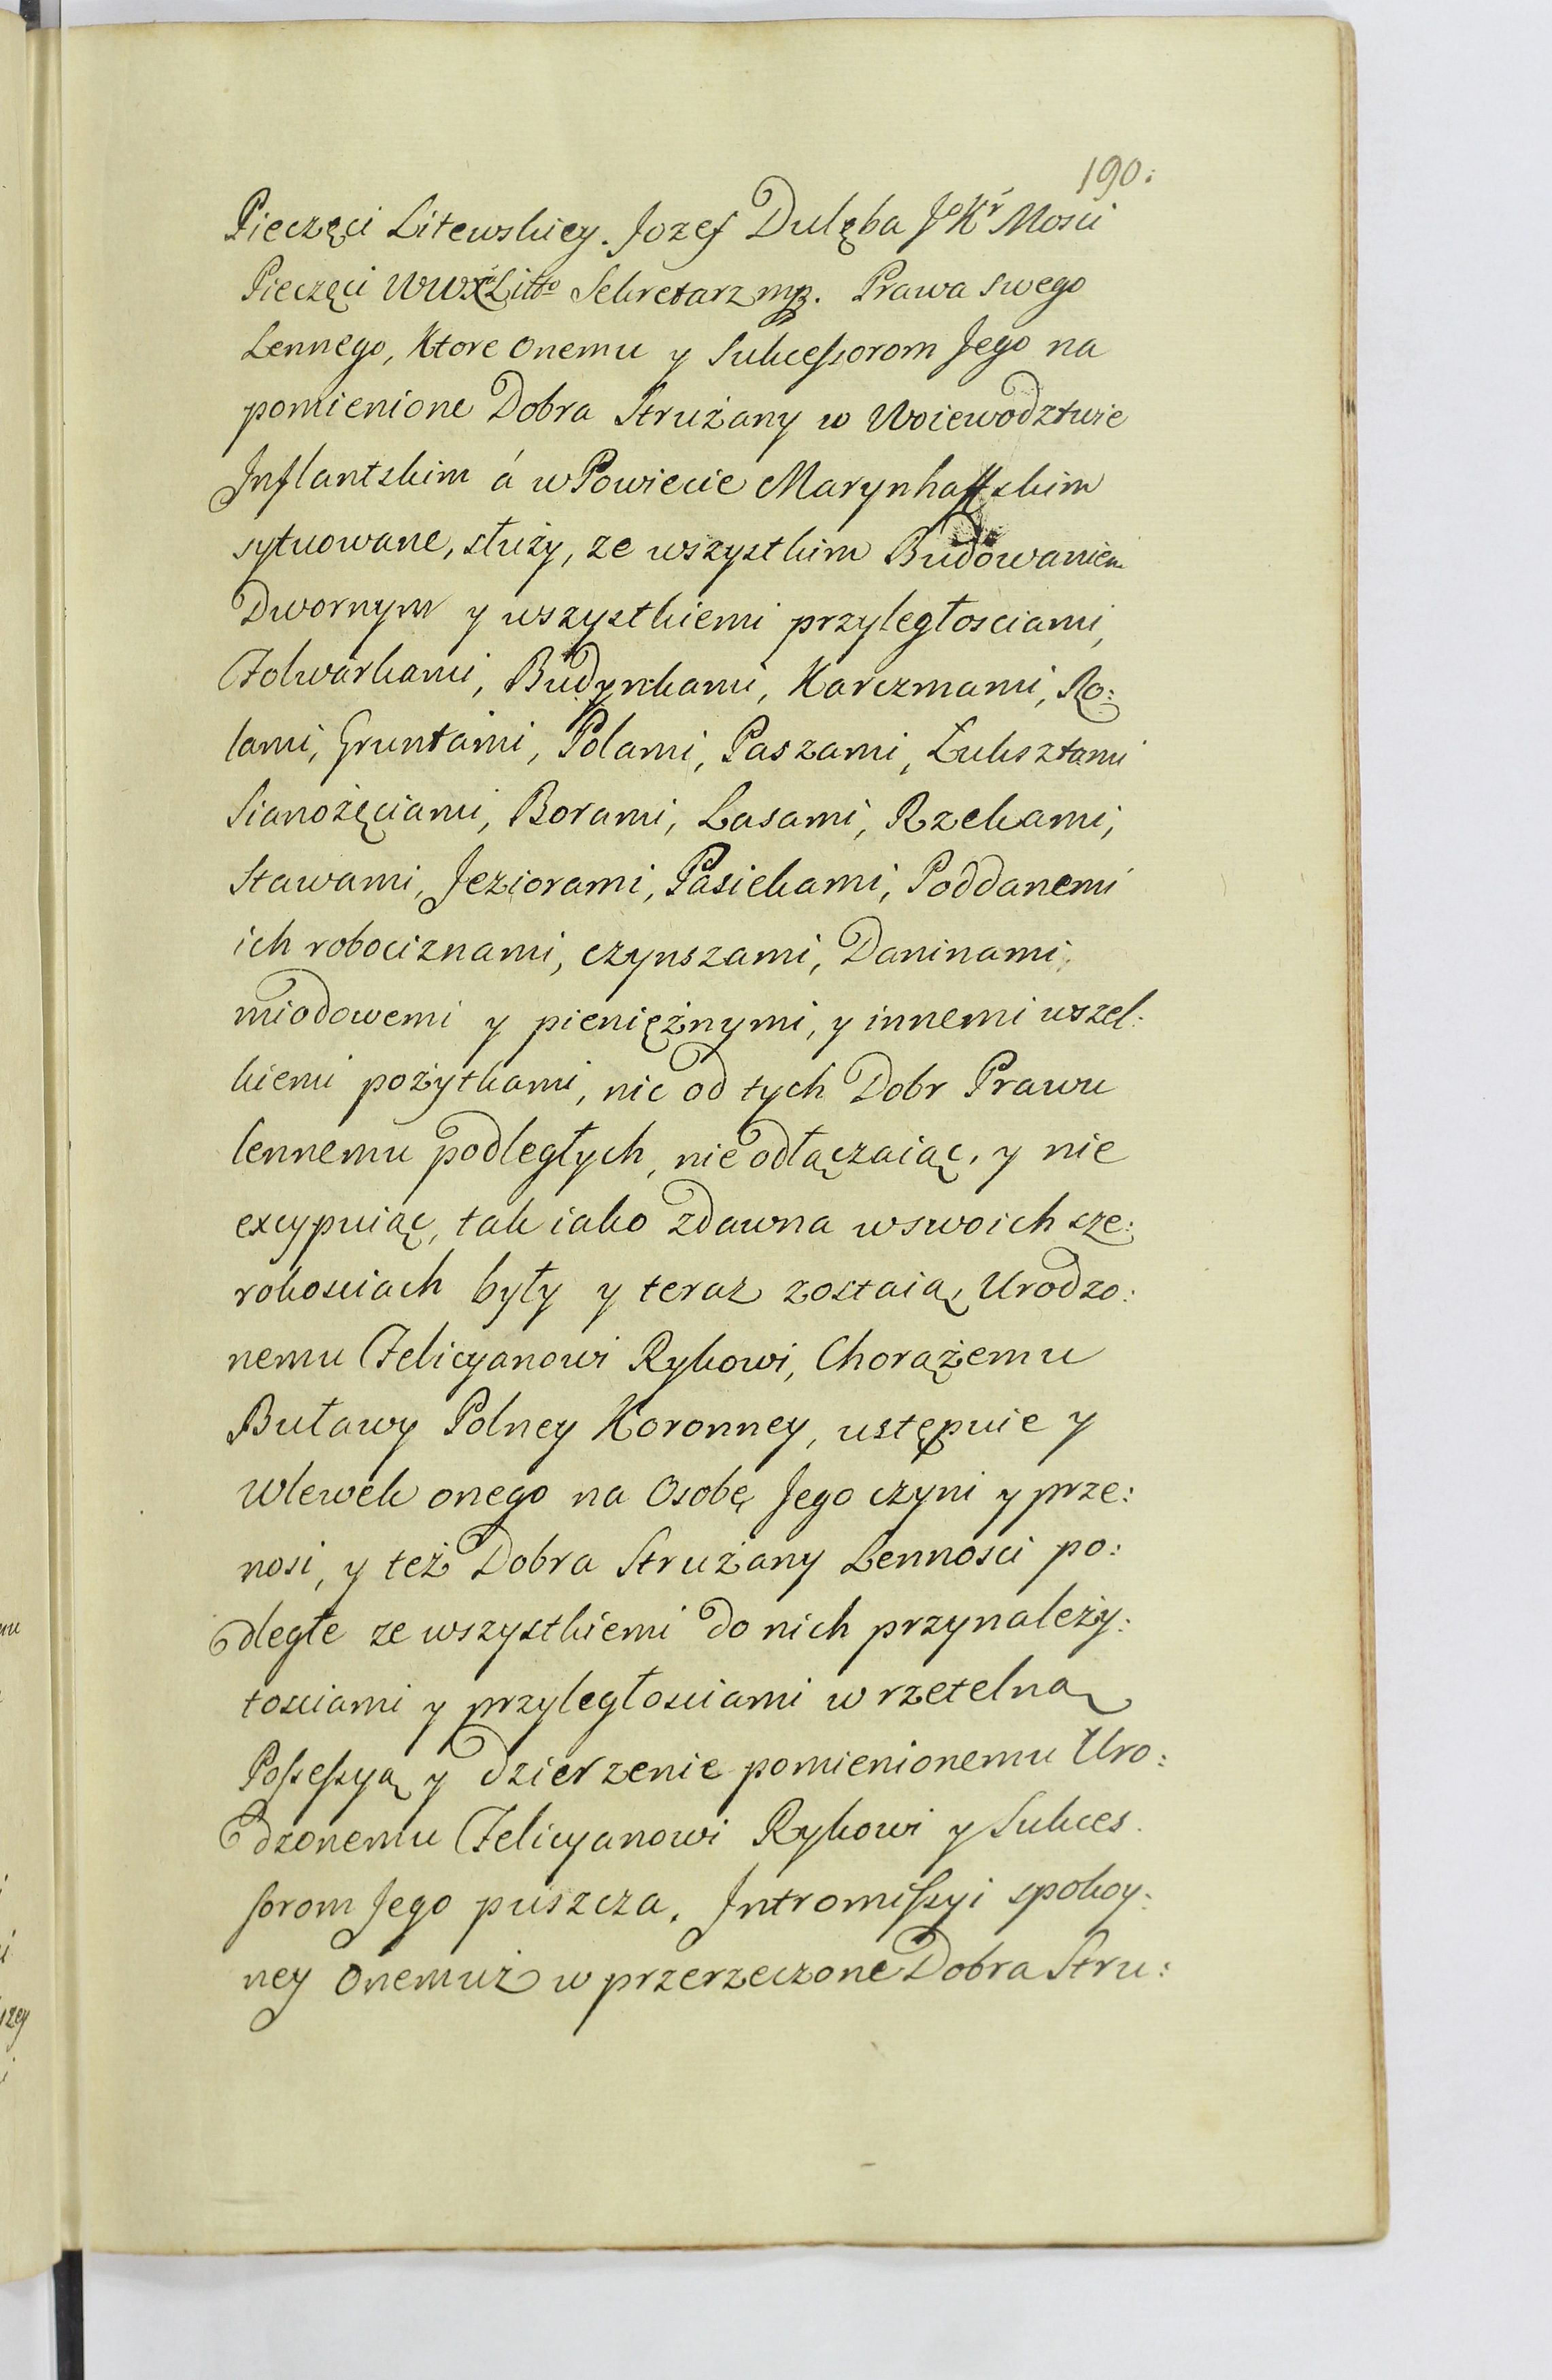 190.
Pieczęci Litewskiey. Jozef Dulęba Jº Kr Mosci
Pieczęci WWXLittº Sekretarz mp. Prawa swego
Lennego, Ktore onemu y Sukcessorom Jego na
pomienione Dobra Strużany w Woiewodztwie
Inflantskim á w Powiecie Marynhaffskim
sytuowane, służy, ze wszystkim Budowaniem
Dwornym y wszystkiemi przyległosciami,
Folwarkami, Budynkami, Karczmami, Ro:
lami, Gruntami, Polami, Paszami, Łuksztami
Sianożęciami, Borami, Lasami, Rzekami,
Stawami, Jeziorami, Pasiekami, Poddanemi
ich robociznami, czynszami, Daninami,
miodowemi y pieniężnymi, y innemi wszel:
kiemi pożytkami, nic od tych Dobr Prawu
lennemu podległych, nie odłączaiąc, y nie
excypuiąc, tak iako zdawna w swoich sze:
rokosciach były y teraz zostaią, Urodzo:
nemu Felicyanowi Rykowi, Chorążemu
Buławy Polney Koronney, ustępuie y
Wlewek onego na Osobę Jego czyni y prze:
nosi, y też Dobra Strużany Lennosci po:
dległe ze wszystkiemi do nich przynależy:
tosciami y przyległosciami w rzetelną
Possessyą y dzierzenie pomienionemu Uro:
dzonemu Felicyanowi Rykowi y Sukces.
sorom Jego puszcza. Intromissyi spokoy:
ney Onemuż w przerzeczone Dobra Stru: